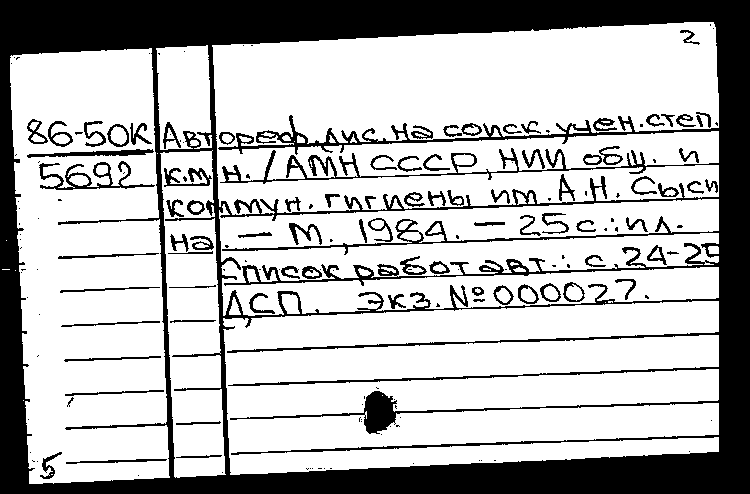 2
86-50К Автореф. дис. на соиск. учен. степ.
5692 к.м.н. / АМН СССР, НИИ общ. и
коммун. гигиены им. А.Н. Сыси
на. — М., 1984. — 25 с.: ил.
Список работ авт.: с. 24-25
ДСП. Экз. № 000027.
5